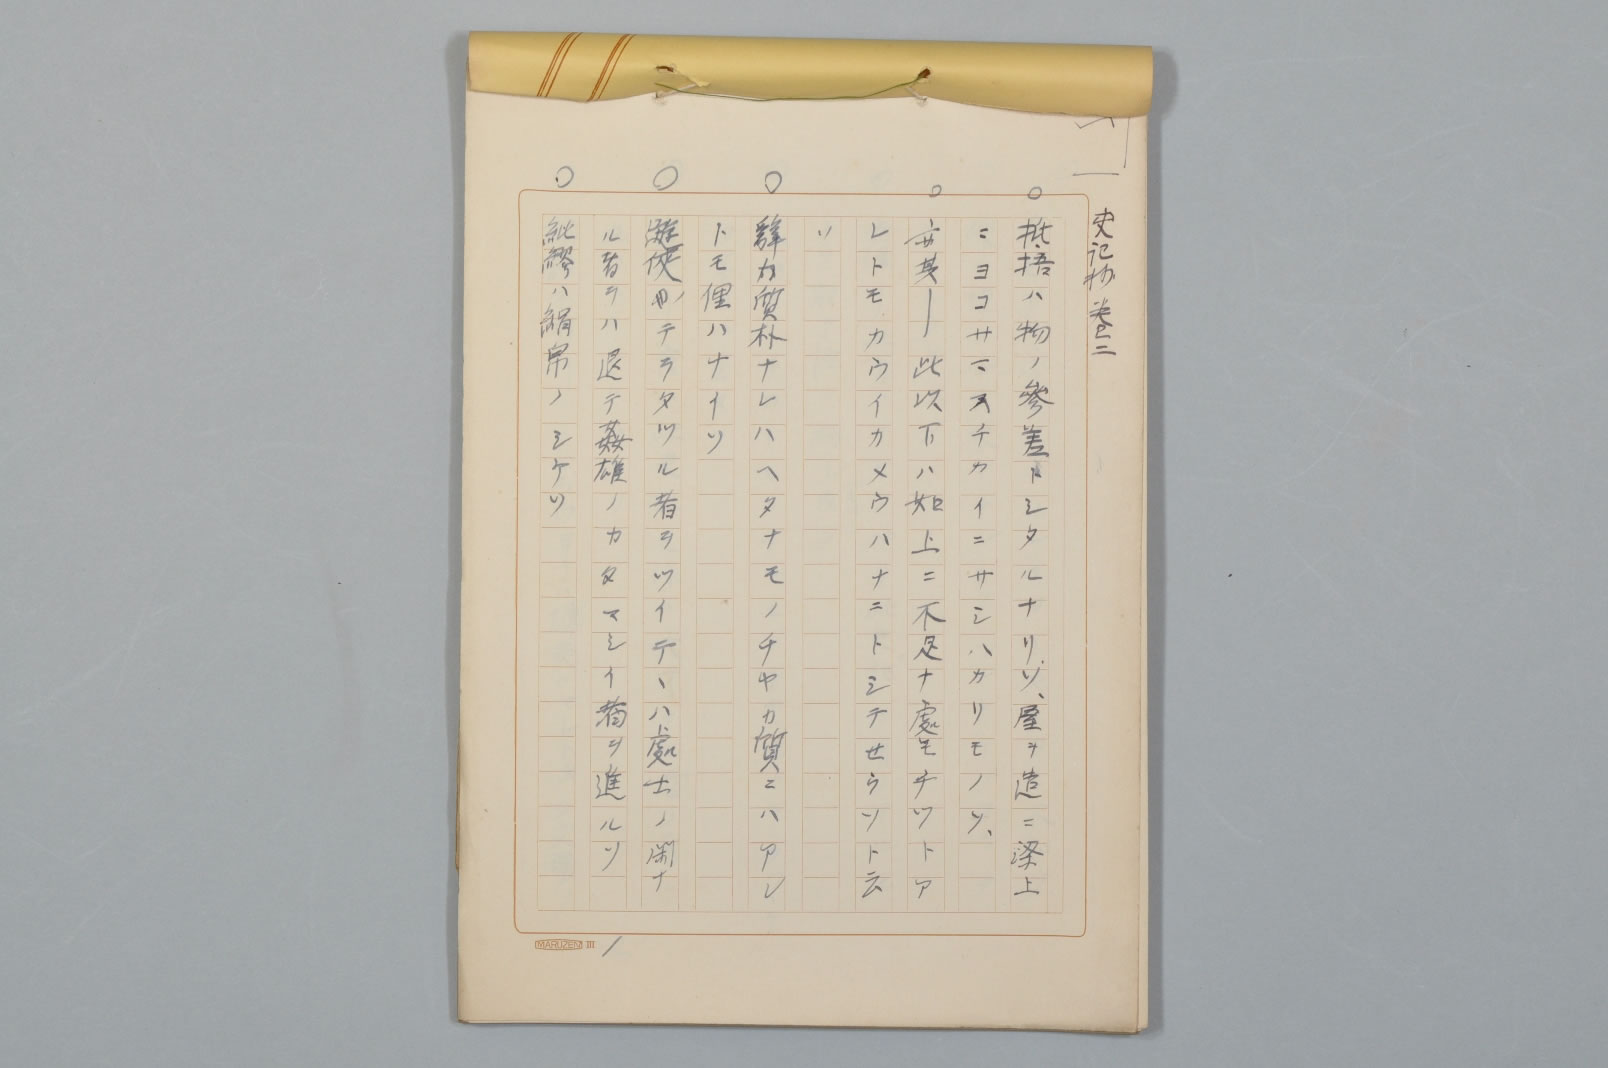 史記抄 巻二
抵捂ハ物ノ参差トシタルナリソ、屋ヲ造ニ梁上
ニヨコサマスチカイニサシハカリモノソ、
亦其ー此以下ハ如上ニ不足ナ處モチツトア
レトモカウイカメウハナニトシテせウソト云
ソ
辞カ質朴ナレハヘタナモノチヤカ質ニハアレ
トモ俚ハナイソ
遊侠カテヲタツル者ヲツイテハ、處士ノ閑ナ
ル者ヲハ退テ姦雄ノカタマシイ者ヲ進ルソ
紕繆ハ絹帛ノシケソ
MARUZEN III
1